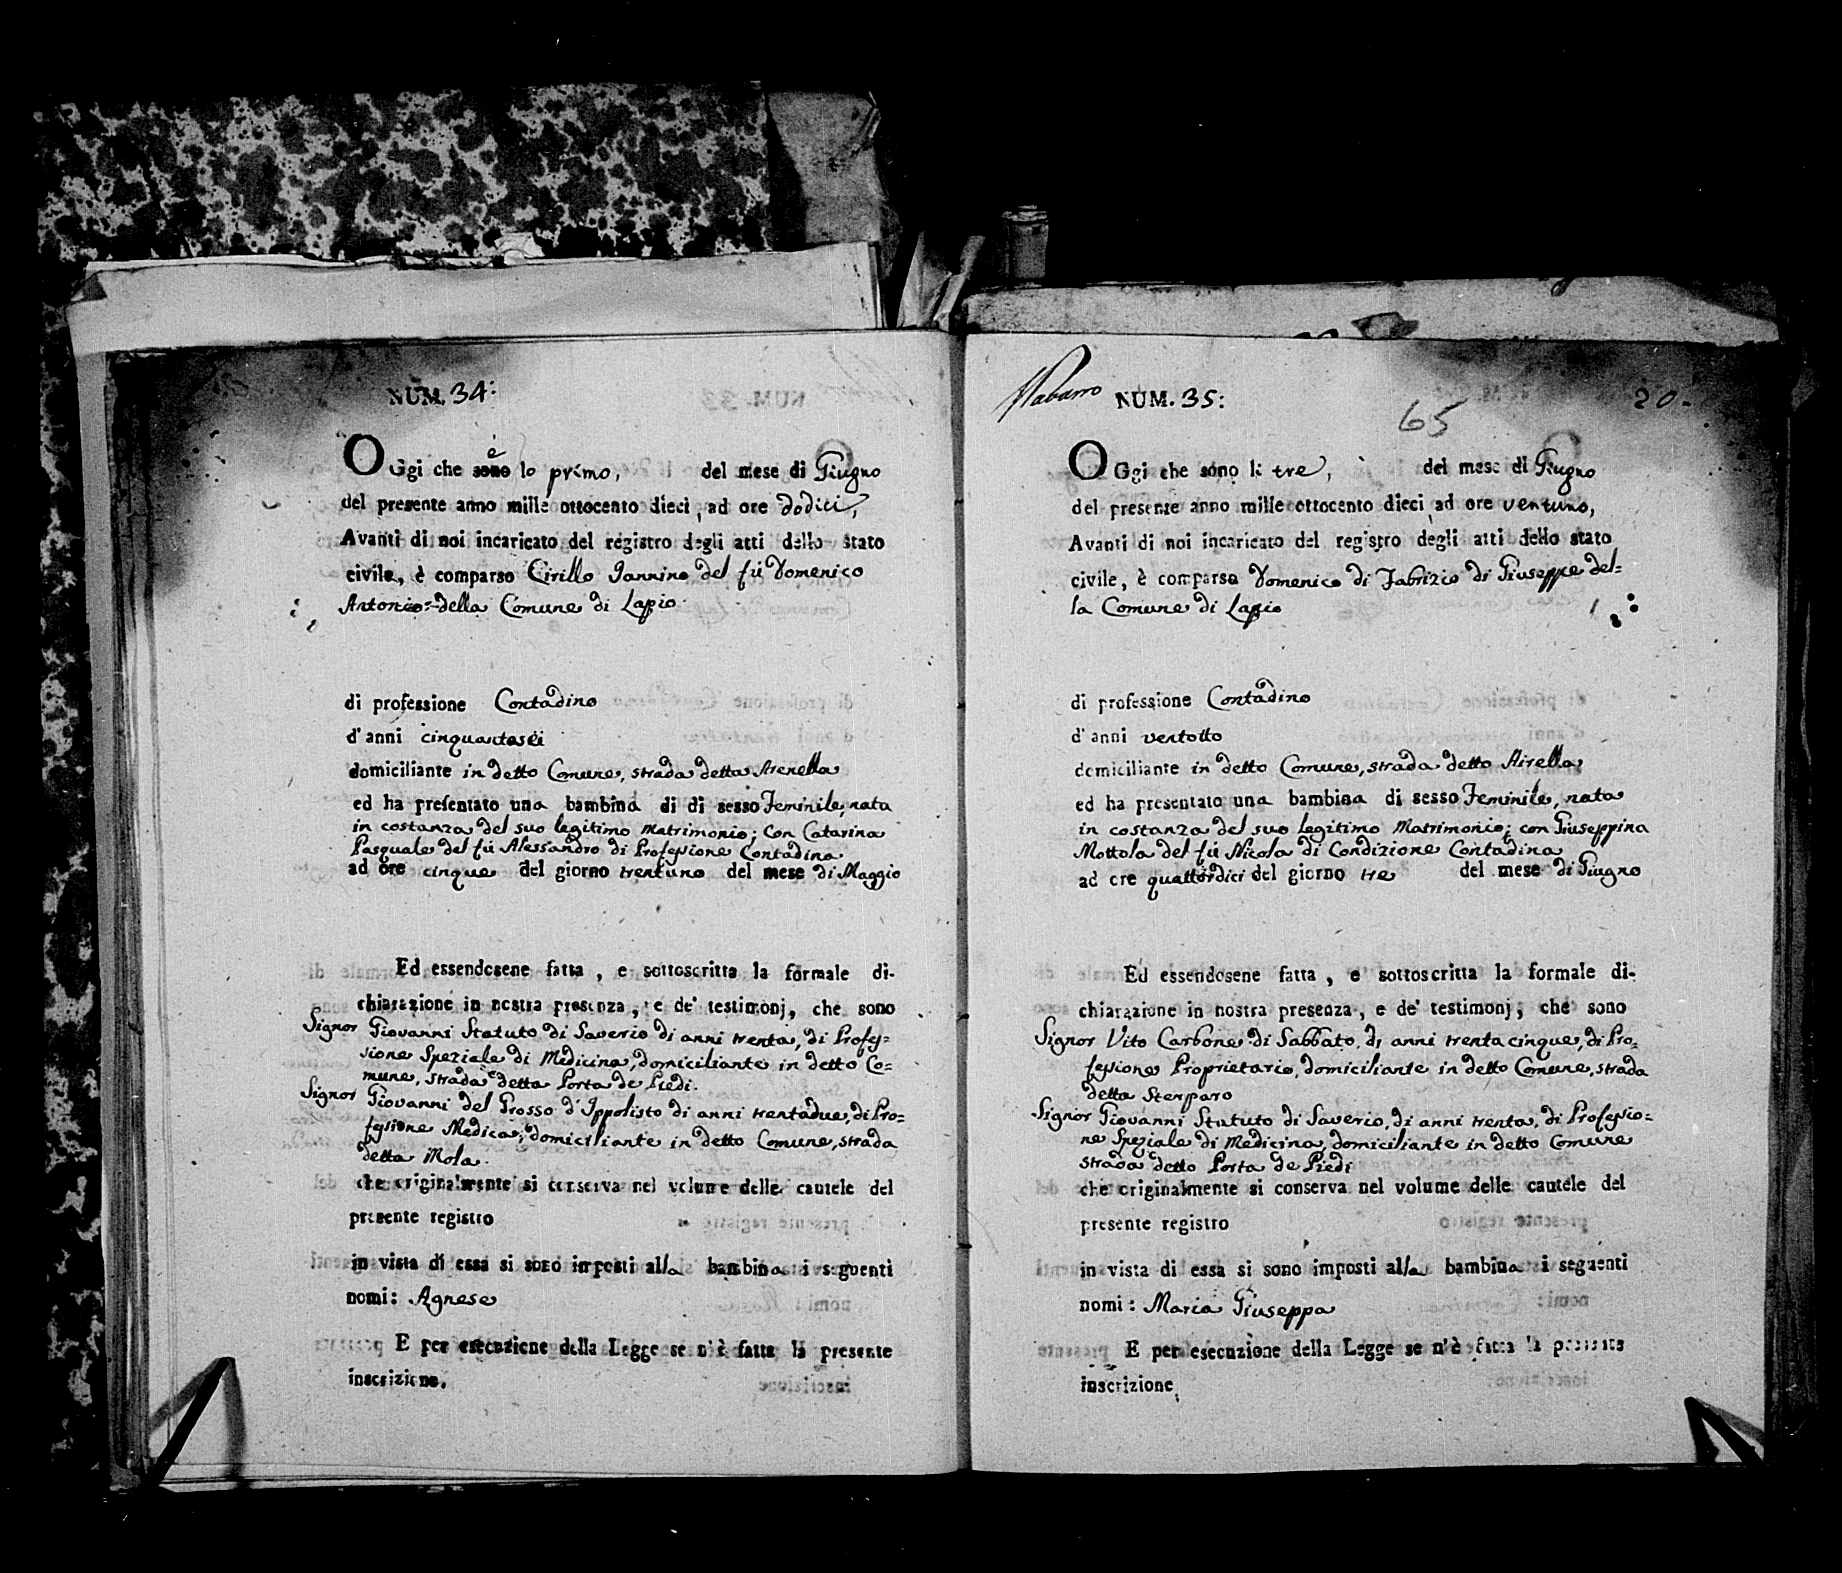 NUM. 34:
OGgi che sono è lo primo, del mese di Giugno
del presente anno mille ottocento dieci, ad ore dodici,
Avanti di noi incaricato del registro degli atti dello stato
civile, è comparso Cirillo Jannino del fù Domenico
Antonio=della Comune di Lapio
di professione Contadino
d'anni cinquantasei
domiciliante in detto Comune, strada detta Arenella
ed ha presentato una bambina di di sesso Feminile, nata
in costanza del suo legitimo Matrimonio; Con Catarina
Pasquale del fù Alessandro di Professione Contadina
ad ore cinque del giorno trentuno del mese di Maggio
Ed essendosene fatta, e sottoscritta la formale di-
chiarazione in nostra presenza, e de' testimonj, che sono
Signor Giovanni Statuto di Saverio di anni trenta, di Profes=
sione Speziale di Medicina, domiciliante in detto Co=
mune, strada detta Porta de Piedi.
Signor Giovanni del Grosso d'Ippolisto di anni trentadue, di Pro=
fessione Medica, domiciliante in detto Comune, strada
detta Mola.
che originalmente si conserva nel volume delle cautele del
presente registro
in vista di essa si sono imposti alla bambina i seguenti
nomi: Agnese
E per esecuzione della Legge se n'è fatta la presente
inscrizione.
NUM. 35:
65
20
OGgi che sono li tre, del mese di Giugno
del presente anno mille ottocento dieci, ad ore ventuno,
Avanti di noi incaricato del registro degli atti dello stato
civile, è comparso Domenico di Fabrizio di Giuseppe del=
la Comune di Lapio
di professione Contadino
d'anni ventotto
domiciliante in detto Comune, strada detto Airella
ed ha presentato una bambina di sesso Feminile, nata
in costanza del suo legitimo Matrimonio; con Giuseppina
Mottola del fù Nicola di Condizione Contadina
ad ore quattordici del giorno tre del mese di Giugno
Ed essendosene fatta, e sottoscritta la formale di-
chiarazione in nostra presenza, e de' testimonj, che sono
Signor Vito Carbone di Sabbato, di anni trentacinque, di Pro=
fessione Proprietario, domiciliante in detto Comune, strada
detta Sterparo
Signor Giovanni Statuto di Saverio, di anni trenta, di Professio=
ne Speziale di Medicina, domiciliante in detto Comune
strada detto Porta de Piedi
che originalmente si conserva nel volume delle cautele del
presente registro
in vista di essa si sono imposti alla bambina i seguenti
nomi: Maria Giuseppa
E per esecuzione della Legge se n'è fatta la presente
inscrizione